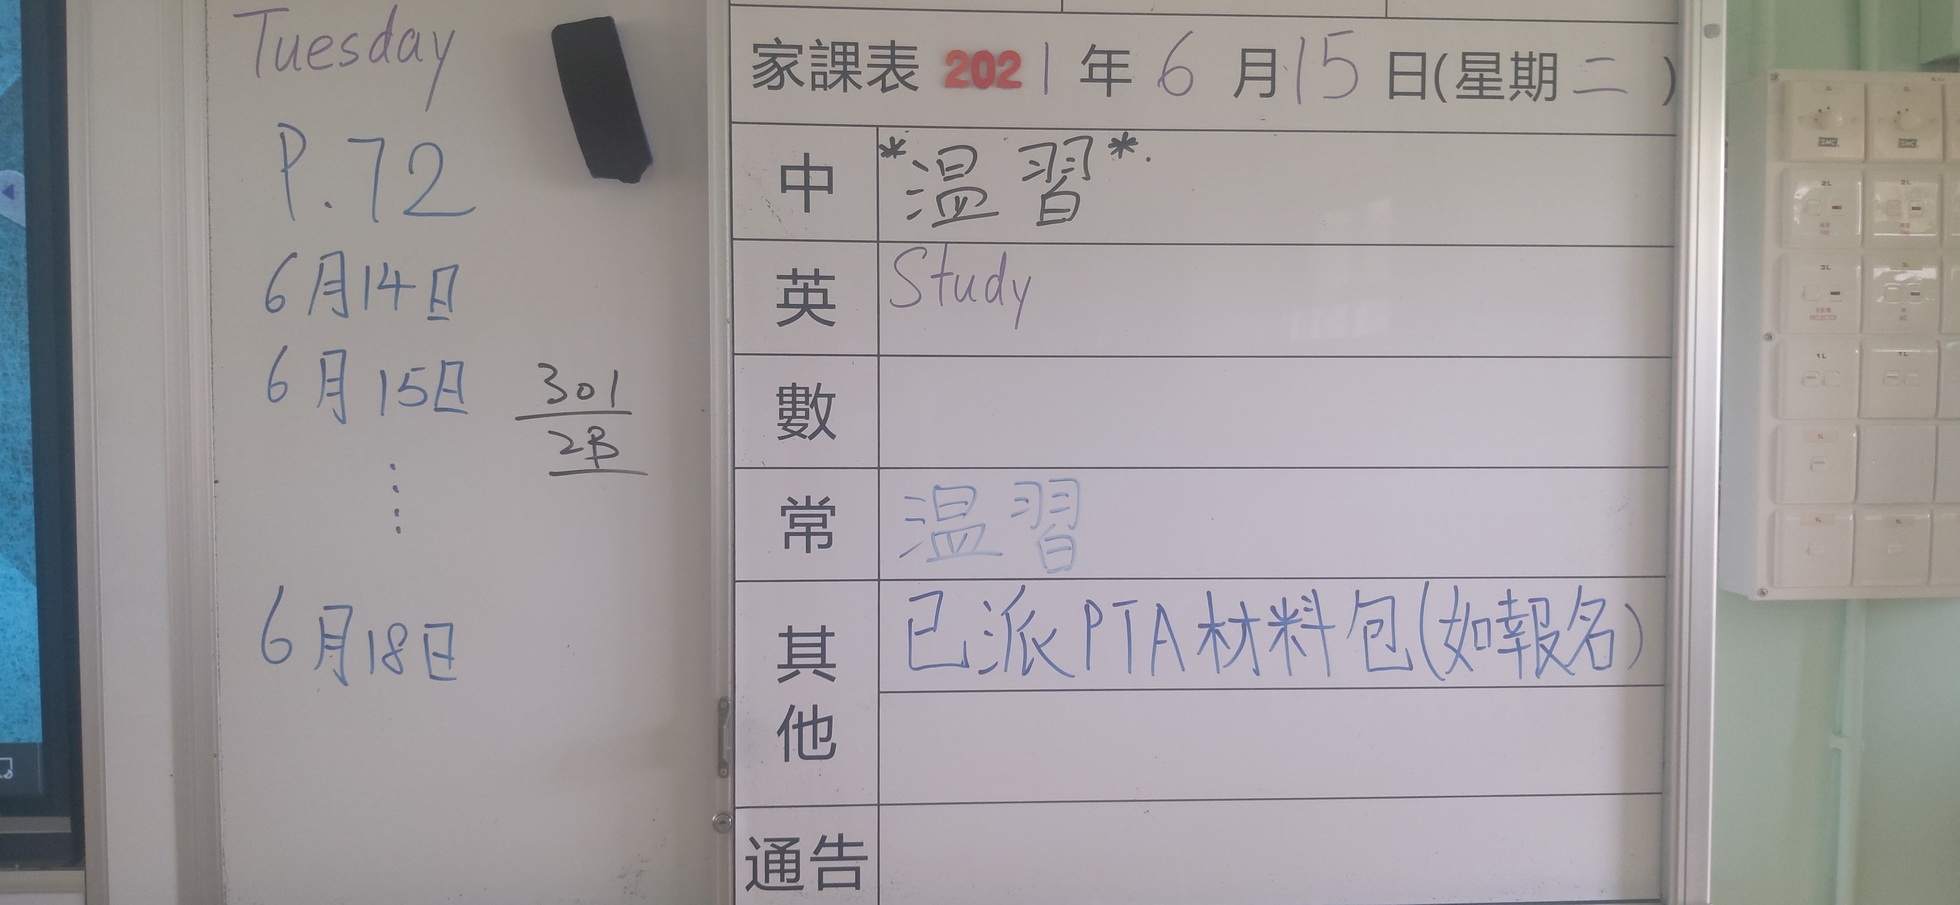 Tuesday
P.72
6月14日
6月15日
301
2B
6月18日
家課表 2021年6月15日(星期二)
中 *溫習*.
英 Study
數
常 溫習
其他 已派PTA材料包(如報名)
通告